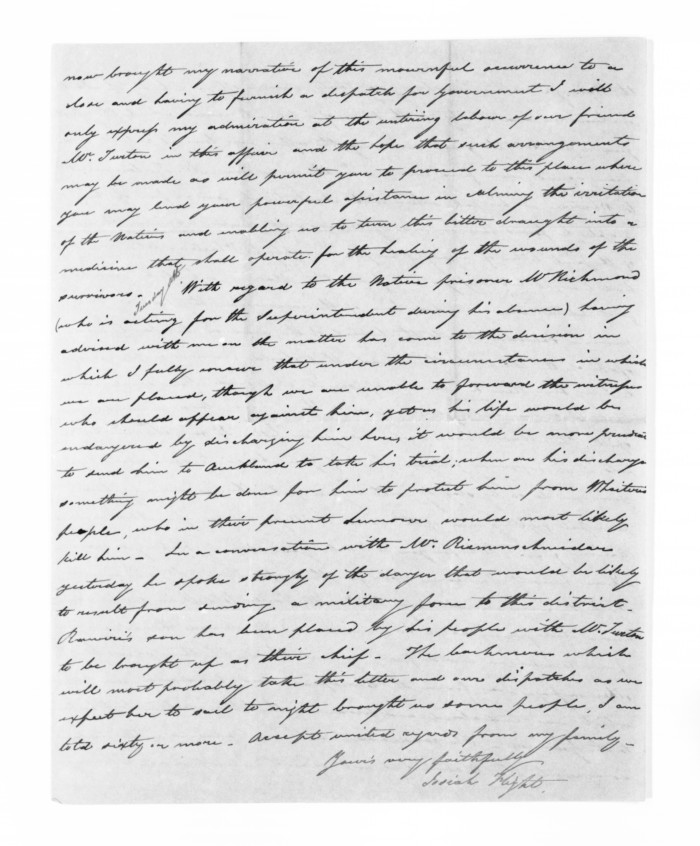 now brought my narrative of this mournful occurrence to a
close and having to furnish a dispatch for Government I will
only express my admiration at the untiring labour of our friend
Mr. Turton in this affair and the hope that such arrangements
may be made as will permit you to proceed to this place where
you may lend your powerful assistance in calming the irritation
of the Natives and enabling us to turn this bitter draught into a
medicine that shall operate for the healing of the wounds of the
survivors. Tuesday With regard to the Native prisoner Mr Richmond
(who is acting for the Superintendent during his absence) having
advised with me on the matter has come to the decision in
which I fully concur that under the circumstances in which
we are placed, though we are unable to forward the witnesses
who should appear against him, yet as his life would be
endangered by discharging him here, it would be more prudent
to send him to Auckland to take his trial, when on his discharge
something might be done for him to protect him from
people, who in their present humour would most likely
kill him - In a conversation with Mr. Riemenschneider
yesterday he spoke strongly of the danger that would be likely
to result from sending a military force to this district -
Rawiri's son has been placed by his people with Mr. Turton
to be brought up as their chief - The which
will most probably take this letter and our dispatches as we
expect her to sail to night brought us some people, I am
told sixty or more - Accept united regards from my family -
Yours very faithfully
Josiah Flight.